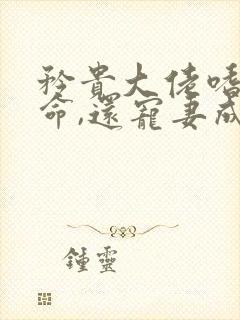 矜貴大佬嗜
命,還寵妻成
鍾靈